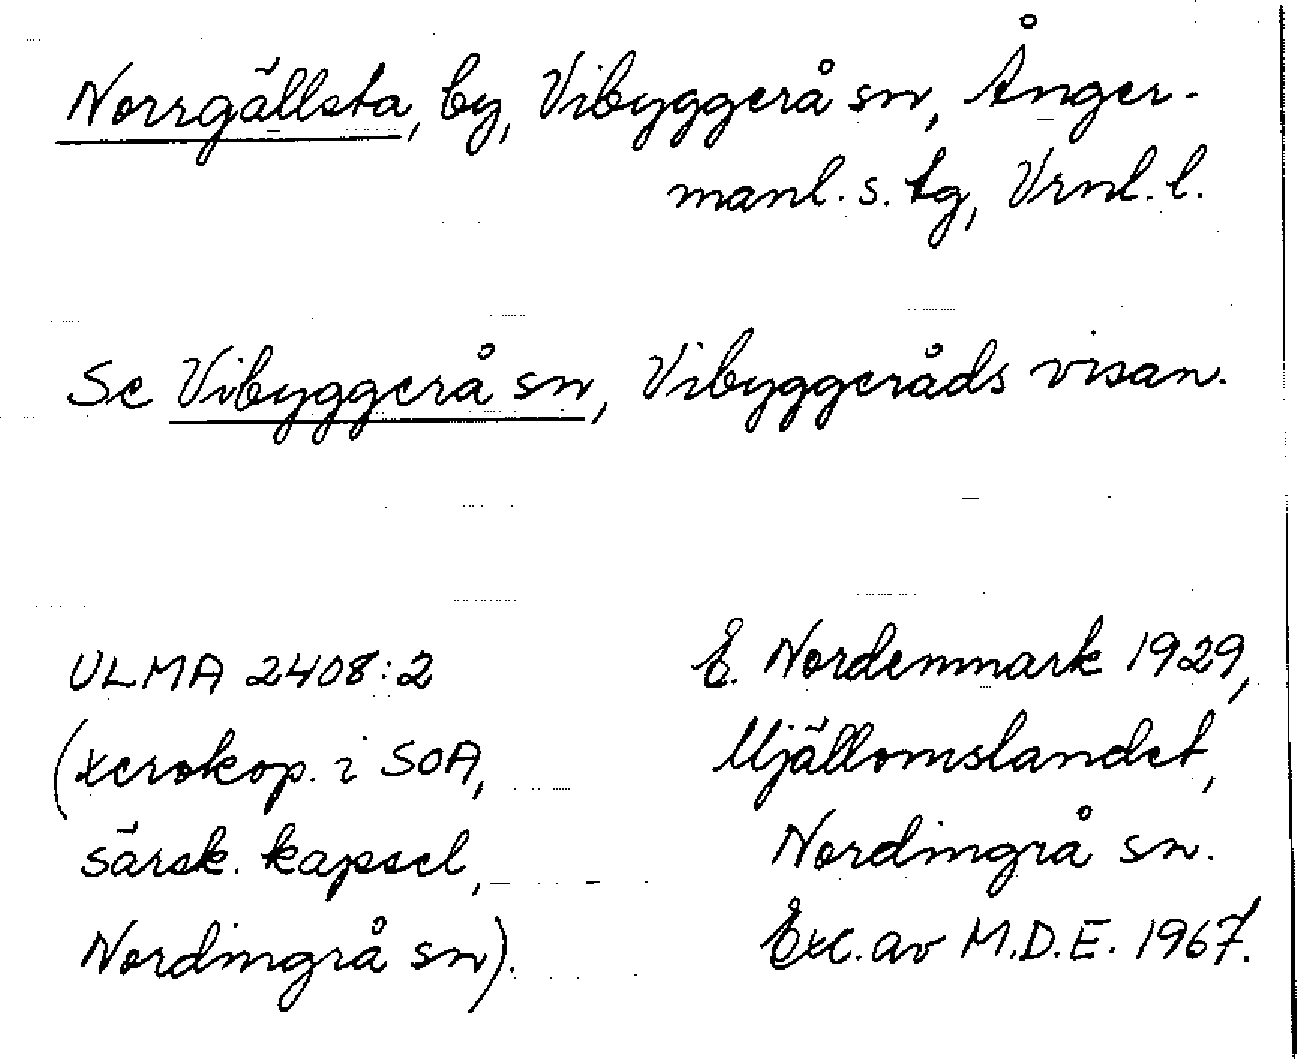 Norrgällsta, by, Vibyggerå sn, Ånger-
manl. s. tg, Vrnl. l.
Se Vibyggerå sn, Vibyggeråds visan.
ULMA 2408:2
(xerokop. i SOA,
särsk. kapsel,
Nordingrå sn).
E. Nordenmark 1929,
Mjällomslandet,
Nordingrå sn.
Exc. av M.D.E. 1967.